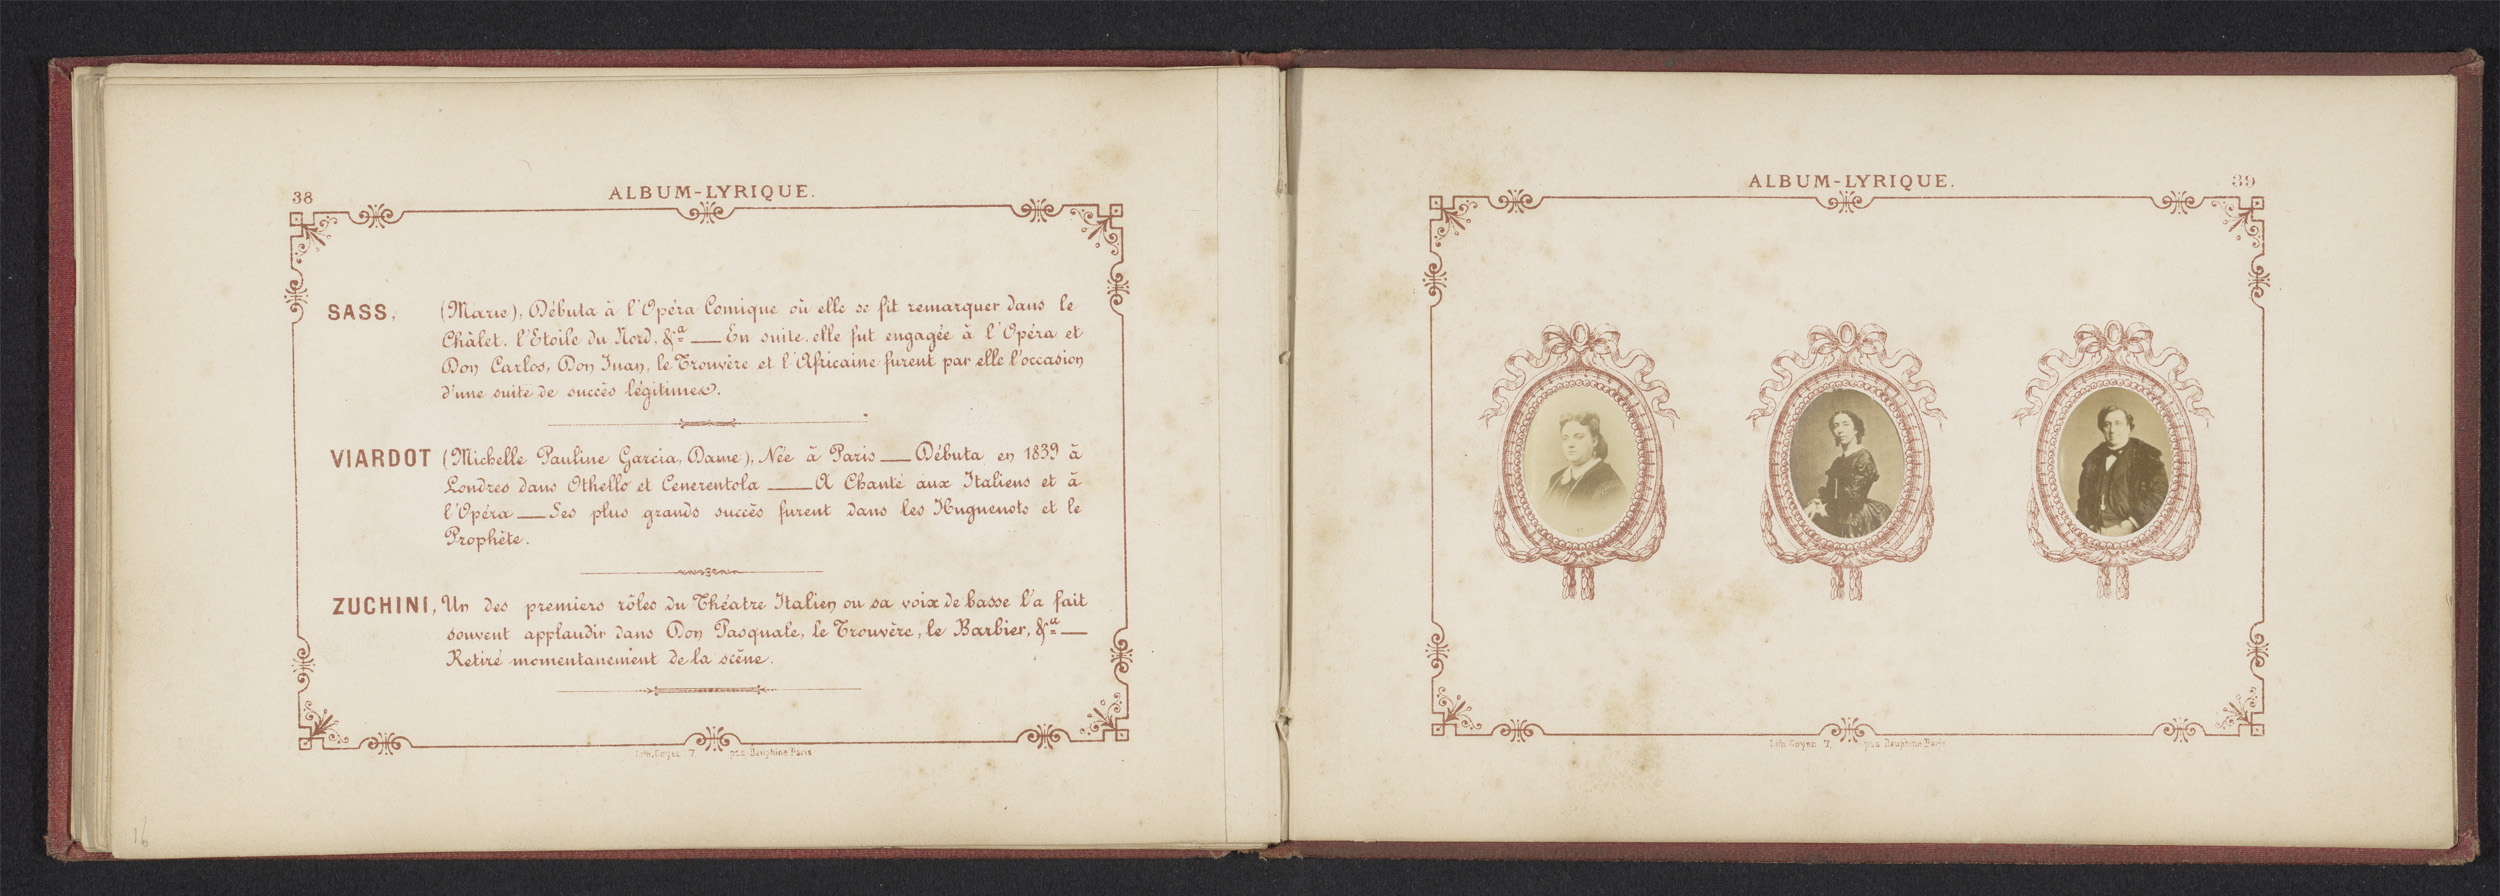 38
ALBUM-LYRIQUE.
SASS, (Marie), Débuta à l'Opéra Comique où elle se fit remarquer dans le
Châlet, l'Etoile du Nord, &a — En suite, elle fut engagée à l'Opéra et
Don Carlos, Don Juan, le Trouvère et l'Africaine furent par elle l'occasion
d'une suite de succès légitimes.
VIARDOT (Michelle Pauline Garcia, Dame), Née à Paris — Débuta en 1839 à
Londres dans Othello et Cenerentola — A Chanté aux Italiens et à
l'Opéra — Ses plus grands succès furent dans les Huguenots et le
Prophète.
ZUCHINI, Un des premiers rôles du Théatre Italien ou sa voix de basse l'a fait
souvent applaudir dans Don Pasquale, le Trouvère, le Barbier, &a —
Retiré momentanement de la scène.
Lith. Goyer 7, pas Dauphine Paris
16
ALBUM-LYRIQUE.
39
Lith. Goyer 7, pas Dauphine Paris